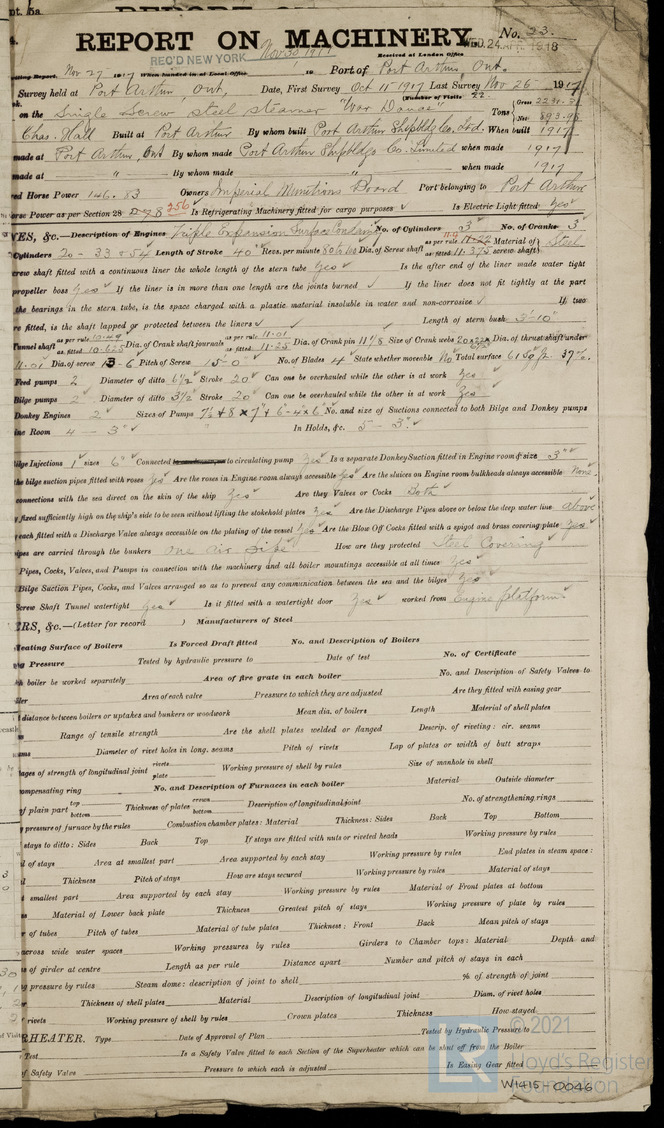 pt. 5a.
REPORT ON MACHINERY.
No. 23.
REC'D NEW YORK Nov 30 1917
Received at London Office
WED. 24 APR. 1918
Report, Nov 27 1917 When handed in at Local Office 19 Port of Port Arthur, Ont.
Survey held at Port Arthur Ont, Date, First Survey Oct 15 1917 Last Survey Nov 26 1917
(Number of Visits 22
on the Single Screw steel steamer "War Dance" Tons Gross
Net
Chas. Hall Built at Port Arthur By whom built Port Arthur Shipbldg Co. Ltd. When built 1917
made at Port Arthur, Ont By whom made Port Arthur Shipbldg Co. Limited when made 1917
made at " By whom made " when made 1917
Horse Power 146.53 Owners Imperial Munitions Board Port belonging to Port Arthur
Power as per Section 28 256 Is Refrigerating Machinery fitted for cargo purposes Is Electric Light fitted Yes
&c.—Description of Engines Triple Expansion Surface Condensing No. of Cylinders 3 No. of Cranks 3
Cylinders 20 - 33 & 54 Length of Stroke 40" Revs. per minute 80 Dia. of Screw shaft as per rule as fitted 11.375 Material of screw shaft Steel
screw shaft fitted with a continuous liner the whole length of the stern tube Yes Is the after end of the liner made water tight
propeller boss Yes If the liner is in more than one length are the joints burned If the liner does not fit tightly at the part
the bearings in the stern tube, is the space charged with a plastic material insoluble in water and non-corrosive If two
are fitted, is the shaft lapped or protected between the liners Length of stern bush 3'-10"
Tunnel shaft as per rule 10.49 as fitted 10.625 Dia. of Crank shaft journals as per rule 11.01 as fitted 11.25 Dia. of Crank pin 11 1/8 Size of Crank webs Dia. of thrust shaft under
11.01 Dia. of screw 13-6 Pitch of Screw 15-0 No. of Blades 4 State whether moveable No Total surface 61 Sq ft. 37%.
Feed pumps 2 Diameter of ditto 6 1/2 Stroke 20" Can one be overhauled while the other is at work Yes
Bilge pumps 2 Diameter of ditto 3 1/2 Stroke 20" Can one be overhauled while the other is at work Yes
Donkey Engines 2 Sizes of Pumps 7 1/2 + 8 x 7 + 6 - 4 x 6 No. and size of Suctions connected to both Bilge and Donkey pumps
Room 4 — 3" In Holds, &c. 5 - 3"
Bilge Injections 1 sizes 6" Connected to circulating pump Yes Is a separate Donkey Suction fitted in Engine room & size 3"
the bilge suction pipes fitted with roses Yes Are the roses in Engine room always accessible Yes Are the sluices on Engine room bulkheads always accessible None
connections with the sea direct on the skin of the ship Yes Are they Valves or Cocks Both
fixed sufficiently high on the ship's side to be seen without lifting the stokehold plates Yes Are the Discharge Pipes above or below the deep water line above
each fitted with a Discharge Valve always accessible on the plating of the vessel Yes Are the Blow Off Cocks fitted with a spigot and brass covering plate Yes
pipes are carried through the bunkers one air pipe How are they protected Steel Covering
Pipes, Cocks, Valves, and Pumps in connection with the machinery and all boiler mountings accessible at all times Yes
Bilge Suction Pipes, Cocks, and Valves arranged so as to prevent any communication between the sea and the bilges Yes
Screw Shaft Tunnel watertight Yes Is it fitted with a watertight door Yes worked from Engine platform
RS, &c.—(Letter for record ) Manufacturers of Steel
Heating Surface of Boilers Is Forced Draft fitted No. and Description of Boilers
Pressure Tested by hydraulic pressure to Date of test No. of Certificate
boiler be worked separately Area of fire grate in each boiler No. and Description of Safety Valves to
Area of each valve Pressure to which they are adjusted Are they fitted with easing gear
distance between boilers or uptakes and bunkers or woodwork Mean dia. of boilers Length Material of shell plates
Range of tensile strength Are the shell plates welded or flanged Descrip. of riveting : cir. seams
Diameter of rivet holes in long. seams Pitch of rivets Lap of plates or width of butt straps
ages of strength of longitudinal joint rivets plate Working pressure of shell by rules Size of manhole in shell
compensating ring No. and Description of Furnaces in each boiler Material Outside diameter
of plain part top bottom Thickness of plates crown bottom Description of longitudinal joint No. of strengthening rings
pressure of furnace by the rules Combustion chamber plates : Material Thickness : Sides Back Top Bottom
stays to ditto : Sides Back Top If stays are fitted with nuts or riveted heads Working pressure by rules
of stays Area at smallest part Area supported by each stay Working pressure by rules End plates in steam space :
Thickness Pitch of stays How are stays secured Working pressure by rules Material of stays
smallest part Area supported by each stay Working pressure by rules Material of Front plates at bottom
Material of Lower back plate Thickness Greatest pitch of stays Working pressure of plate by rules
of tubes Pitch of tubes Material of tube plates Thickness : Front Back Mean pitch of stays
across wide water spaces Working pressures by rules Girders to Chamber tops : Material Depth and
of girder at centre Length as per rule Distance apart Number and pitch of stays in each
pressure by rules Steam dome : description of joint to shell % of strength of joint
Thickness of shell plates Material Description of longitudinal joint Diam. of rivet holes
rivets Working pressure of shell by rules Crown plates Thickness How stayed
RHEATER. Type Date of Approval of Plan Tested by Hydraulic Pressure to
Test Is a Safety Valve fitted to each Section of the Superheater which can be shut off from the Boiler
of Safety Valve Pressure to which each is adjusted Is Easing Gear fitted
© 2021
Lloyd's Register
Foundation
W1415-0046